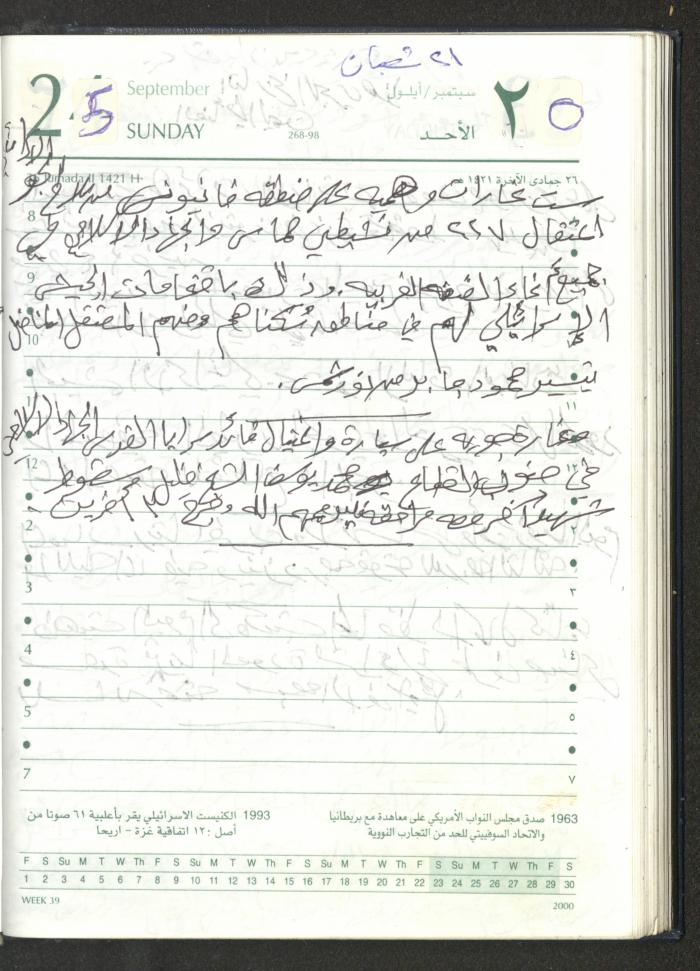 ٢١ شعبان
24 5 September سبتمبر/أيلول ٢ ٥
SUNDAY 268-98 الأحد
Jumada II 1421 H ٢٦ جمادى الآخرة ١٤٢١ هـ
ست غارات وهمية على منطقة خانيونس من سلاح الجو
اعتقال ٢٢٧ من نشيطي حماس والجهاد الاسلامي في
جميع أنحاء الضفة الغربية. وذلك باقتحامات الجيش
الإسرائيلي لهم في مناطق سُكناهم ومنهم المعتقل المناضل
تيسير محمود جابر من نور شمس.
غارة جوية على سيارة واغتيال قائد سرايا القدس الجهاد الاسلامي
في جنوب القطاع محمد يوسف الشيخ خليل وسقوط
شهيد آخر معه مرافقه فليرحمهم الله وجرح ٣ آخرين.
8
9
10
11 ١١
12 ١٢
2 ٢
3 ٣
4 ٤
5 ٥
7 ٧
1963 صدق مجلس النواب الأمريكي على معاهدة مع بريطانيا
والاتحاد السوفييتي للحد من التجارب النووية
1993 الكنيست الاسرائيلي يقر بأغلبية ٦١ صوتا من
أصل ١٢٠ اتفاقية غزة - اريحا
F S Su M T W Th F S Su M T W Th F S Su M T W Th F S Su M T W Th F S
1 2 3 4 5 6 7 8 9 10 11 12 13 14 15 16 17 18 19 20 21 22 23 24 25 26 27 28 29 30
WEEK 39 2000